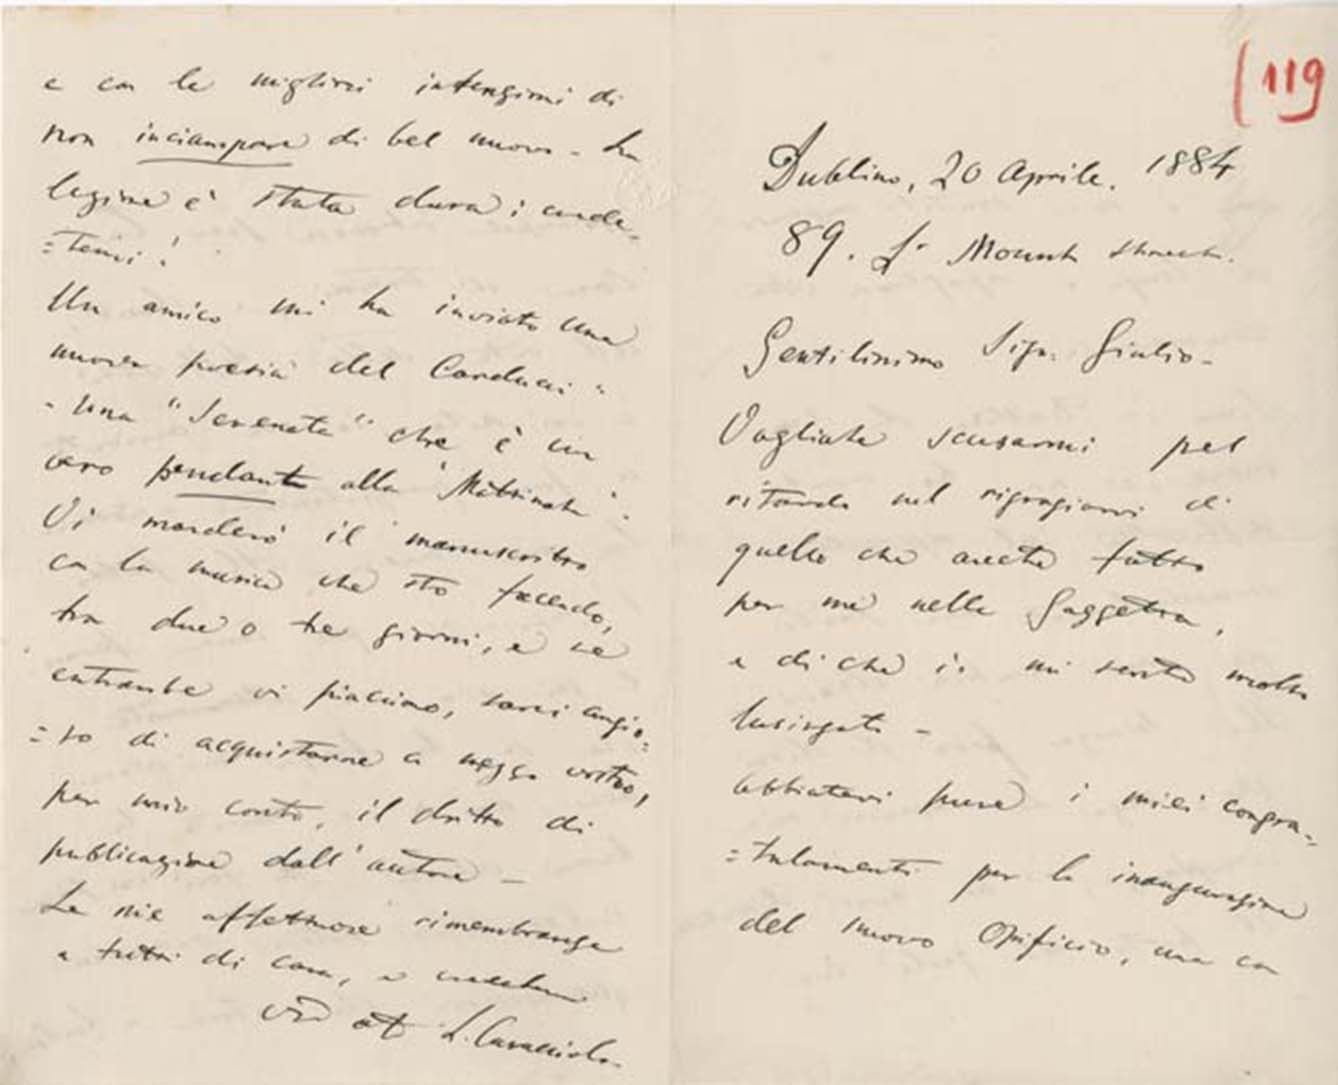 119
Dublino, 20 Aprile. 1884
89. Lr Mount Street.
Gentilissimo Sigr. Giulio -
Vogliate scusarmi pel
ritardo nel ringraziarvi di
quello che avete fatto
per me nella Gazzetta,
e di che io mi sento molto
lusingato -
Abbiatevi pure i miei congra-
=tulamenti per la inaugurazione
del nuovo Opificio, una con
e con le migliori intenzioni di
non inciampare di bel nuovo - La
lezione è stata dura; crede-
=temi!
Un amico mi ha inviato una
nuova poesia del Carducci "
- una "Serenata" che è un
vero pendant alla "Mattinata".
Vi manderò il manoscritto
con la musica che sto facendo,
tra due o tre giorni, e se
entrambe vi piacciono, sarei
di acquistarne a mezzo vostro,
per mio conto, il dritto di
publicazione dall'autore -
Le mie affettuose rimembranze
a tutti di casa, e credetemi
L. Caracciolo.